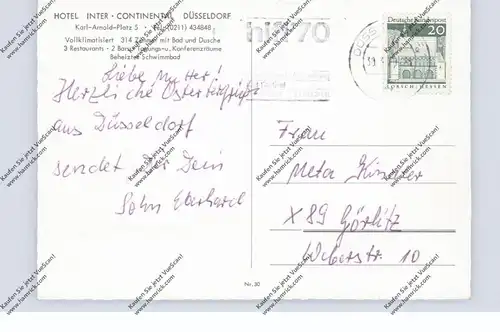 HOTEL INTER · CONTINENTAL DÜSSELDORF
Karl-Arnold-Platz 5 · Tel. (0211) 434848
Vollklimatisiert 314 Zimmer mit Bad und Dusche
3 Restaurants · 2 Bars Tagungs- u. Konferenzräume
Beheiztes Schwimmbad
hifi 70
Deutsche Bundespost
20
LORSCH · HESSEN
Liebe Mutter!
Herzliche Ostergrüße
aus Düsseldorf
sendet Dir Dein
Sohn Eberhard
Frau
Meta
X 89 Görlitz
Weberstr. 10
Nr. 30
Kaufen Sie jetzt VueScan!
www.hamrick.com